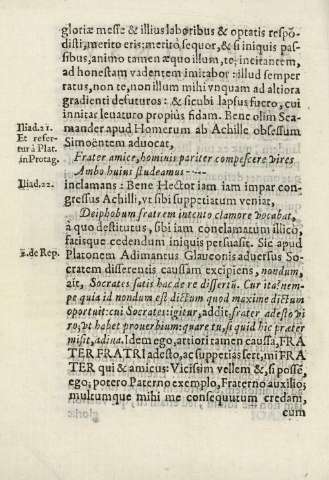 gloriæ messe & illius laboribus & optatis respõ-
disti, merito eris; meritò sequor, & si iniquis pas-
sibus, animo tamen æquo illum, te; incitantem,
ad honestam vadentem imitabor : illud semper
ratus, non te, non illum mihi vnquam ad altiora
gradienti defuturos : & sicubi lapsus fuero, cui
innitar leuaturo propiùs fidam. Bene olim Sca-
Iliad. 21.
mander apud Homerum ab Achille obsessum
Et refer-
Simoëntem aduocat,
tur à Plat.
Frater amice, hominis pariter compescere vires
in Protag.
Ambo huius studeamus
Iliad. 22.
inclamans : Bene Hector iam iam impar con-
gressus Achilli, vt sibi suppetiatum veniat,
Deiphobum fratrem intento clamore vocabat,
à quo destitutus, sibi iam conclamatum illico,
fatisque cedendum iniquis persuasit. Sic apud
2. de Rep.
Platonem Adimantus Glauconis aduersus So-
cratem disserentis caussam excipiens, nondum,
ait, Socrates satis hac de re dissertũ. Cur ita? nem-
pe quia id nondum est dictum quod maxime dictum
oportuit: cui Socrates: igitur, addit, frater adesto vi
ro, vt habet prouerbium: quare tu, si quid hic præter
misit, adiua. Idem ego, attiori tamen caussa, FRA
TER FRATRI adesto, ac suppetias fert, mi FRA
TER qui & amicus: Vicissim vellem &, si possẽ,
ego; potero Paterno exemplo, Fraterno auxilio;
multumque mihi me consequutum credam,
cum